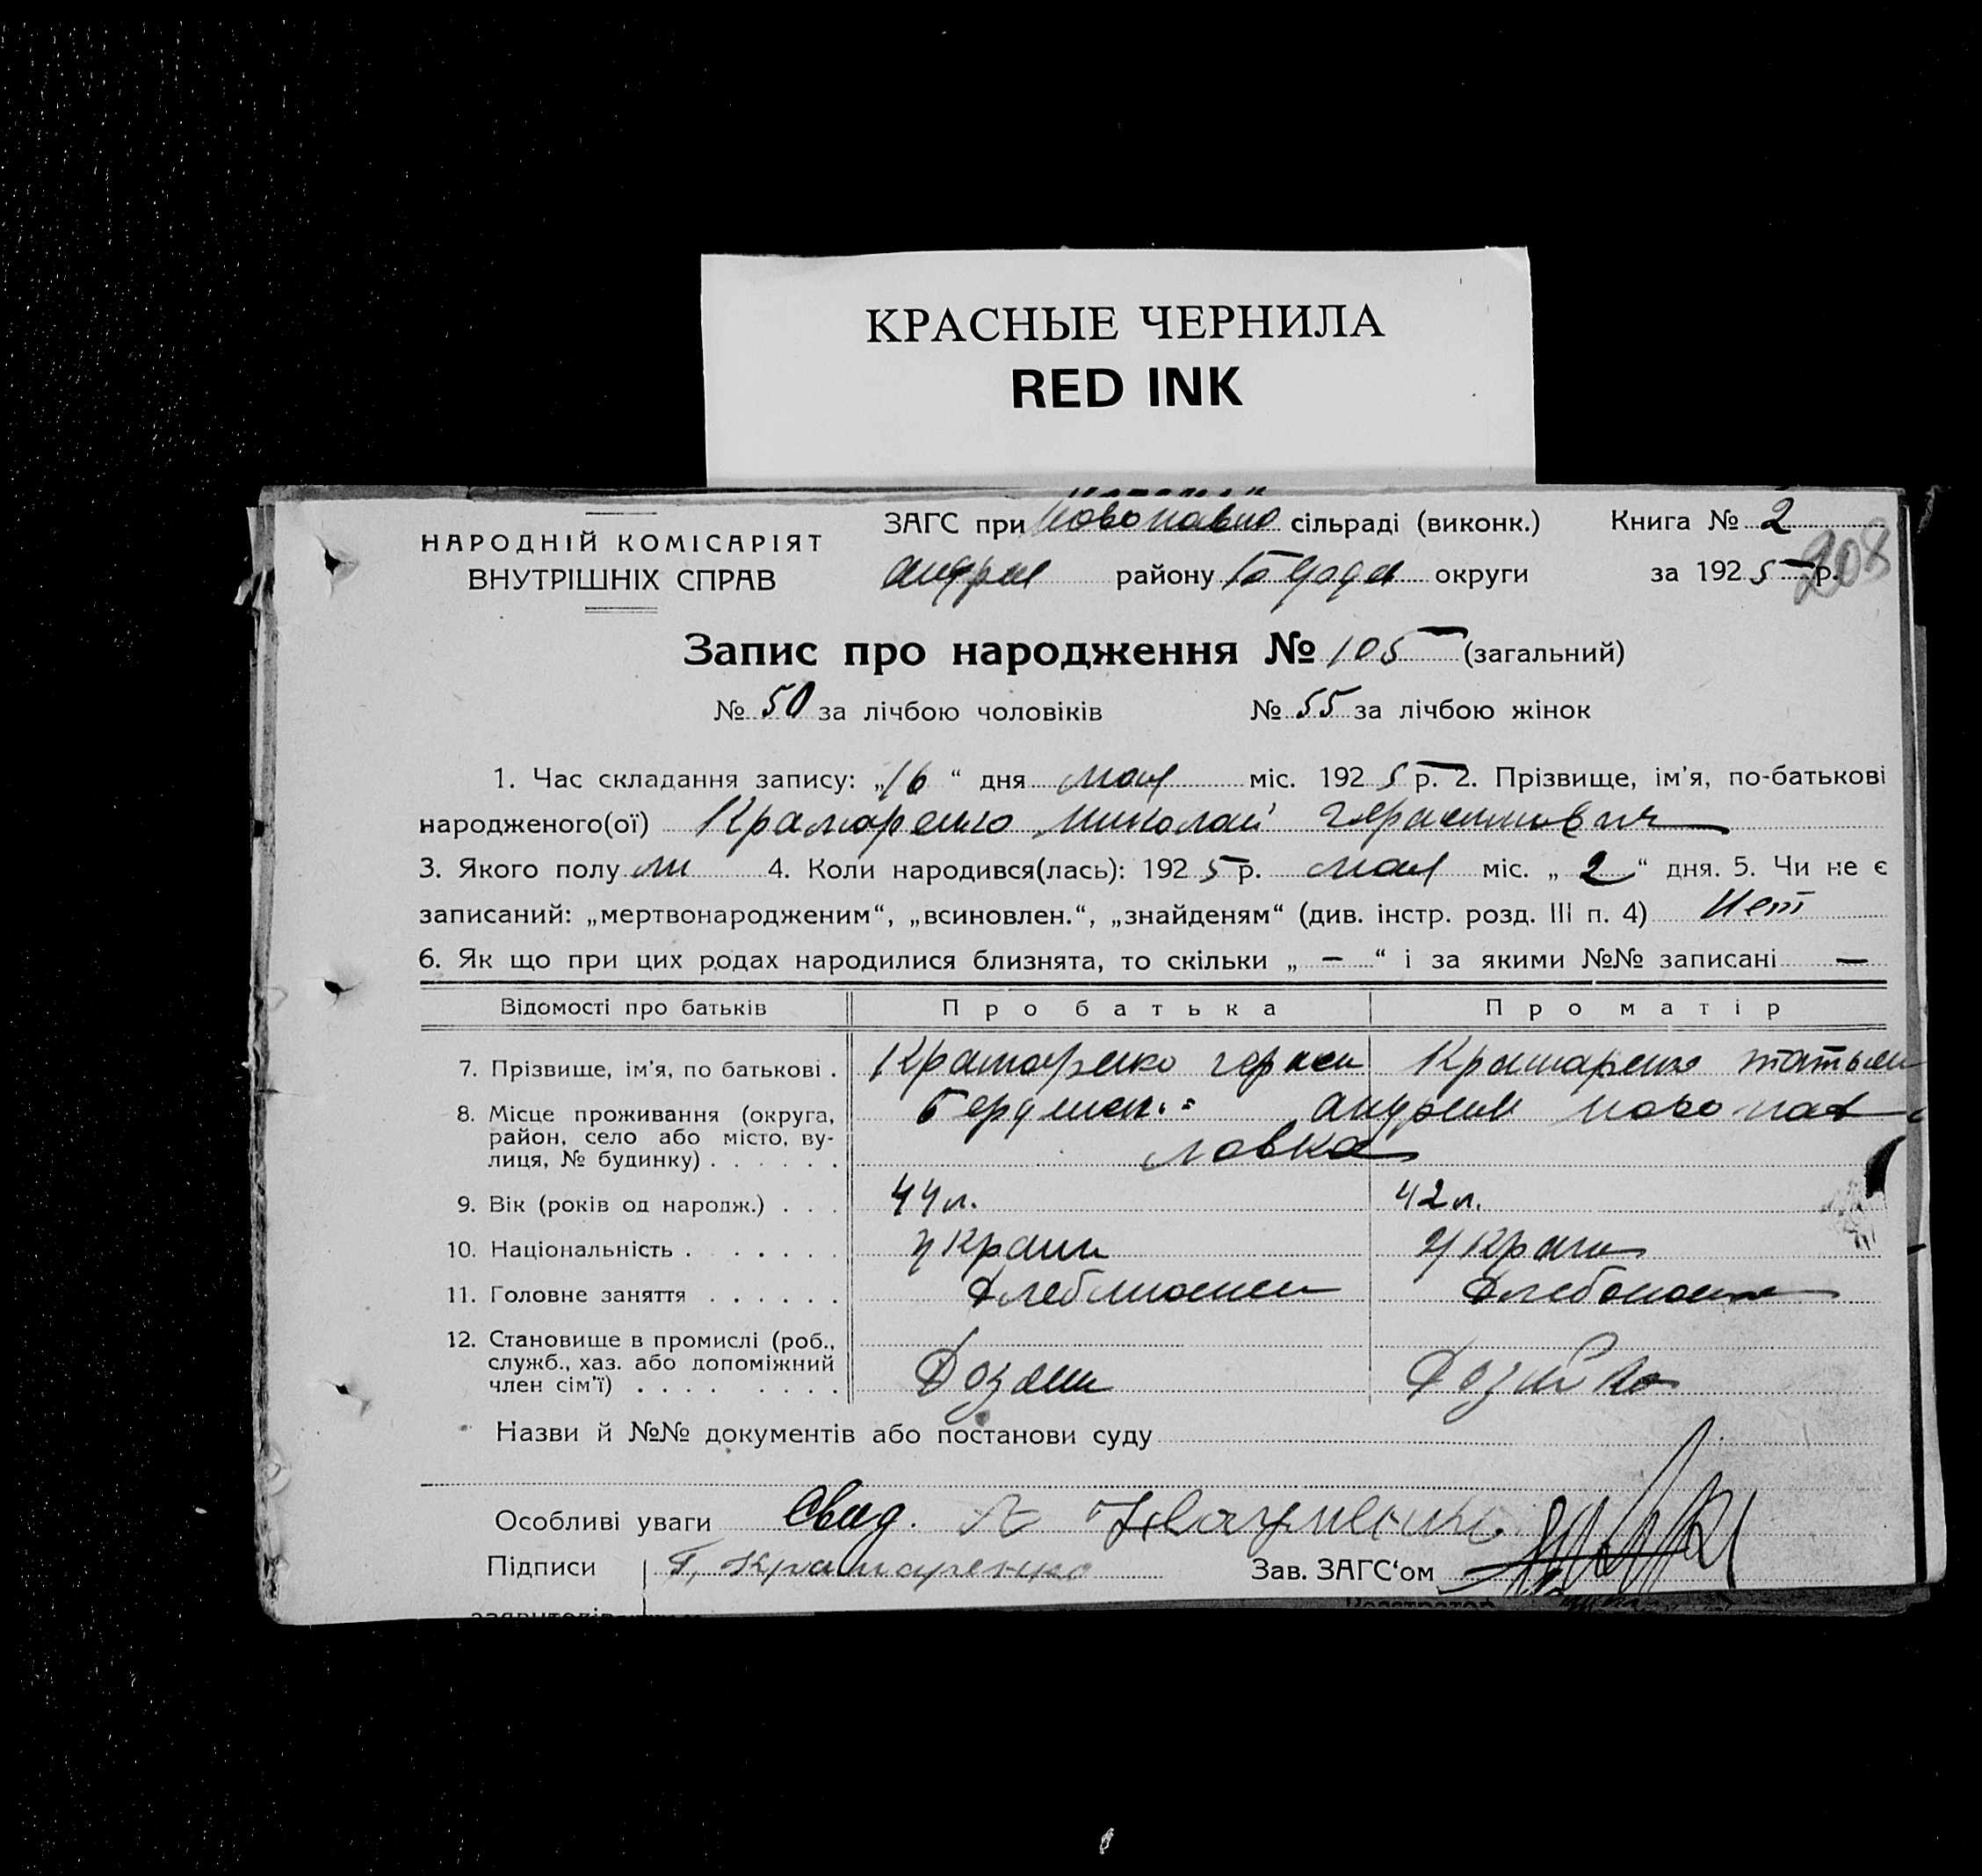 КРАСНЫЕ ЧЕРНИЛА
RED INK
НАРОДНІЙ КОМІСАРІЯТ
ВНУТРІШНІХ СПРАВ
ЗАГС при Новопавло сільраді (виконк.)
Книга № 2
андрее району округи
за 1925 р.
208
Запис про народження № 105 (загальний)
№ 50 за лічбою чоловіків № 55 за лічбою жінок
1. Час складання запису: „16“ дня мая міс. 1925 р. 2. Прізвище, ім'я, по-батькові
народженого(ої) Крамаренко Николай Герасимович
3. Якого полу м 4. Коли народився(лась): 1925 р. мая міс. „2“ дня. 5. Чи не є
записаний: „мертвонародженим“, „всиновлен.“, „знайденям“ (див. інстр. розд. III п. 4) Нет
6. Як що при цих родах народилися близнята, то скільки „ — “ і за якими №№ записані —
Відомості про батьків Про батька Про матір
7. Прізвище, ім'я, по батькові . Крамаренко Гераси Крамаренко Татьян
8. Місце проживання (округа, Бердянск. андреев новопав
район, село або місто, ву- ловка
лиця, № будинку) . . . . . .
9. Вік (років од народж.) . . . 44 л. 42 л.
10. Національність . . . . . . Украин Украин
11. Головне заняття . . . . . .
12. Становище в промислі (роб.,
служб., хаз. або допоміжний
член сім'ї) . . . . . . . . Хозяин Хозяйка
Назви й №№ документів або постанови суду
Особливі уваги Свид.
Підписи Г. Крамаренко Зав. ЗАГС'ом